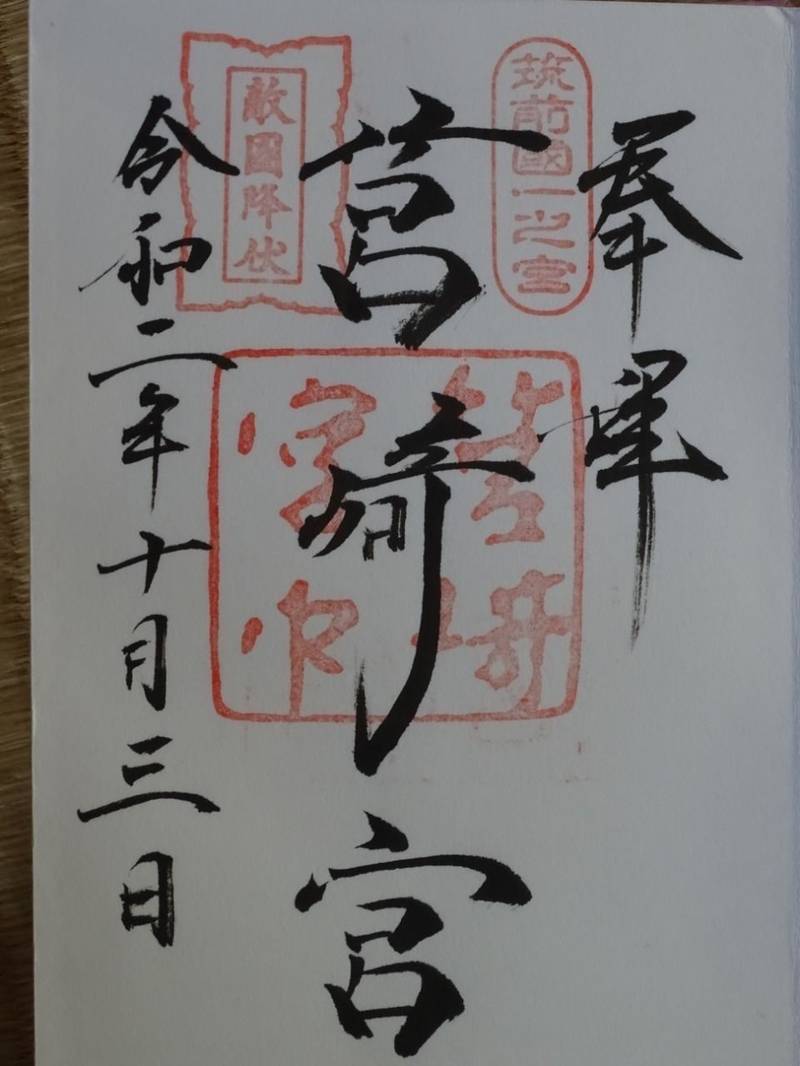 奉拝
筑前國一之宮
筥崎宮
敵國降伏
令和二年十月三日